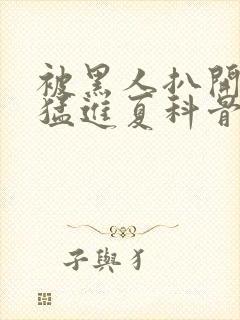 被黑人扒開
猛進夏科骨
子與犭